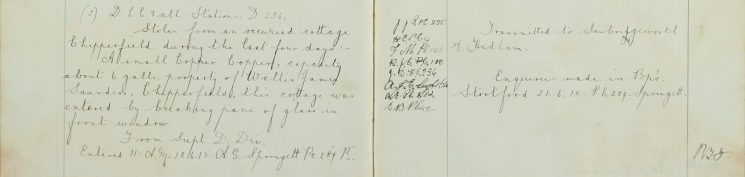 (2) D.C.C. Hatt Station. D. 254.
Stolen from an occupied cottage
Chipperfield during the last four days:-
A small Copper Copper, capacity
about 6 galls, property of Wallis James
Saunders, Chipperfield, this cottage was
entered by breaking pane of glass in
front window.
From Supt. D. Div.
Entered 11-A.M. 18.6.15. A.G. Springett Pc. 289 B.
J J R PC. 225
T. M. Pc 141
R J C Pc. 100
Pc 236
Transmitted to Sawbridgeworth
& Hadham.
Enquiries made in Bp's
Stortford 21.6.15. P.C. 289. Springett.